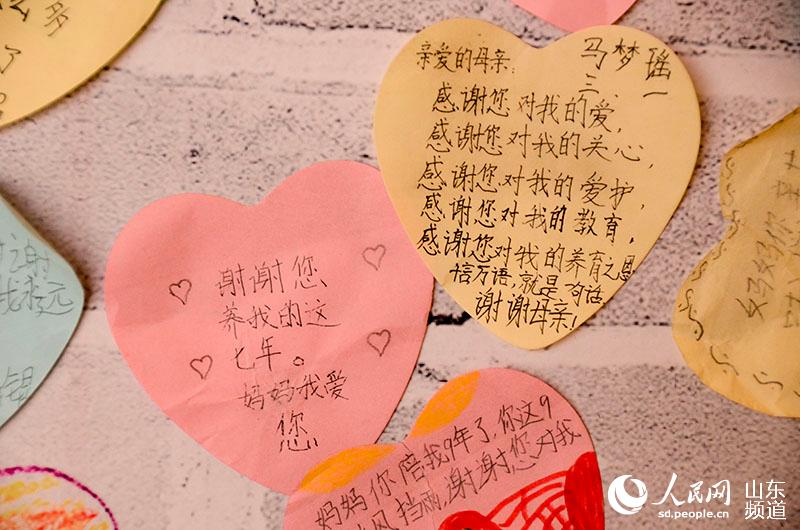 亲爱的母亲:
马梦瑶
三、一
感谢您对我的爱,
感谢您对我的关心,
感谢您对我的爱护,
感谢您对我的教育,
感谢您对我的养育之恩
信万语,就是一句话
谢谢母亲!
谢谢您
养我的这
七年。
妈妈我爱
您
妈妈你陪我9年了,你这9
风挡雨,谢谢您对我
妈妈你
人民网 山东
频道
sd.people.cn